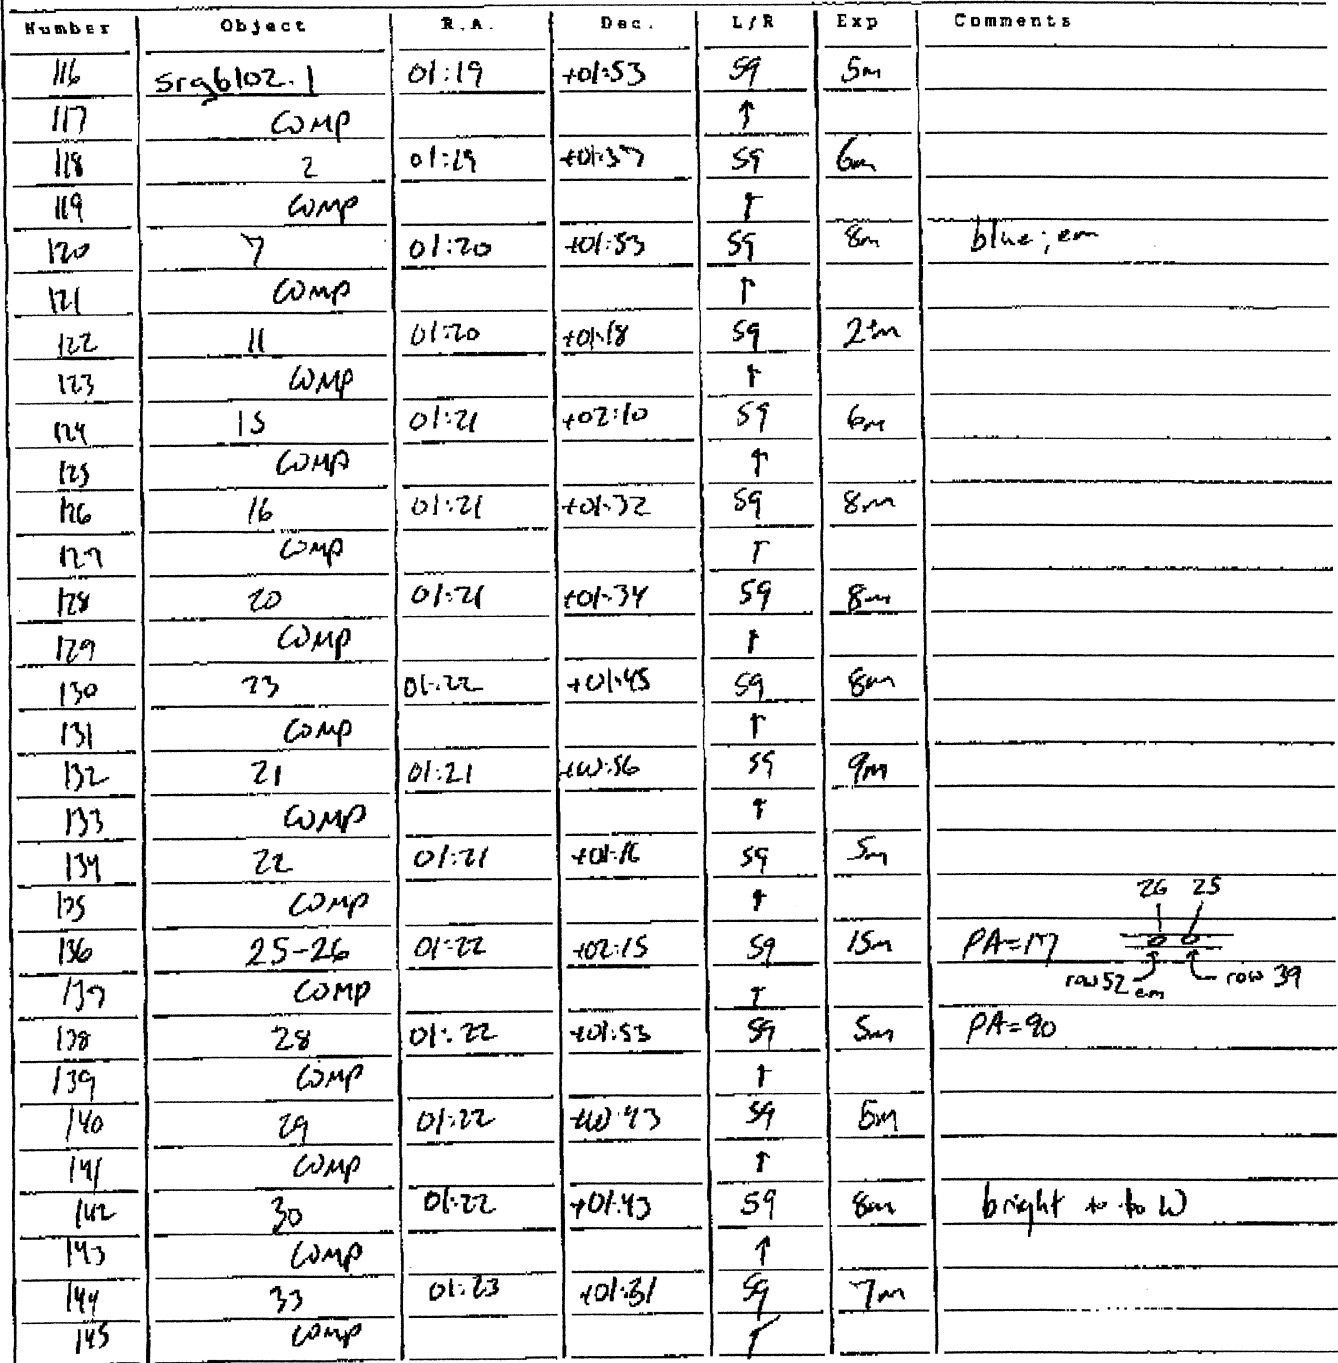 Number Object R.A. Dec. L/R Exp Comments
116 srg6102.1 01:19 +01:53 59 5m
117 COMP ↑
118 2 01:19 +01:37 59 6m
119 COMP ↑
120 7 01:20 +01:53 59 8m blue; em
121 COMP ↑
122 11 01:20 +01:18 59 2+m
123 COMP ↑
124 15 01:21 +02:10 59 6m
125 COMP ↑
126 16 01:21 +01:32 59 8m
127 COMP ↑
128 20 01:21 +01:34 59 8m
129 COMP ↑
130 23 01:22 +01:45 59 8m
131 COMP ↑
132 21 01:21 +00:56 59 9m
133 COMP ↑
134 22 01:21 +01:16 59 5m
135 COMP ↑ 26 25
136 25-26 01:22 +02:15 59 15m PA=117
137 COMP ↑ row 52 em row 39
138 28 01:22 +01:53 59 5m PA=90
139 COMP ↑
140 29 01:22 +00:43 59 5m
141 COMP ↑
142 30 01:22 +01:43 59 8m bright * to W
143 COMP ↑
144 33 01:23 +01:31 59 7m
145 COMP ↑